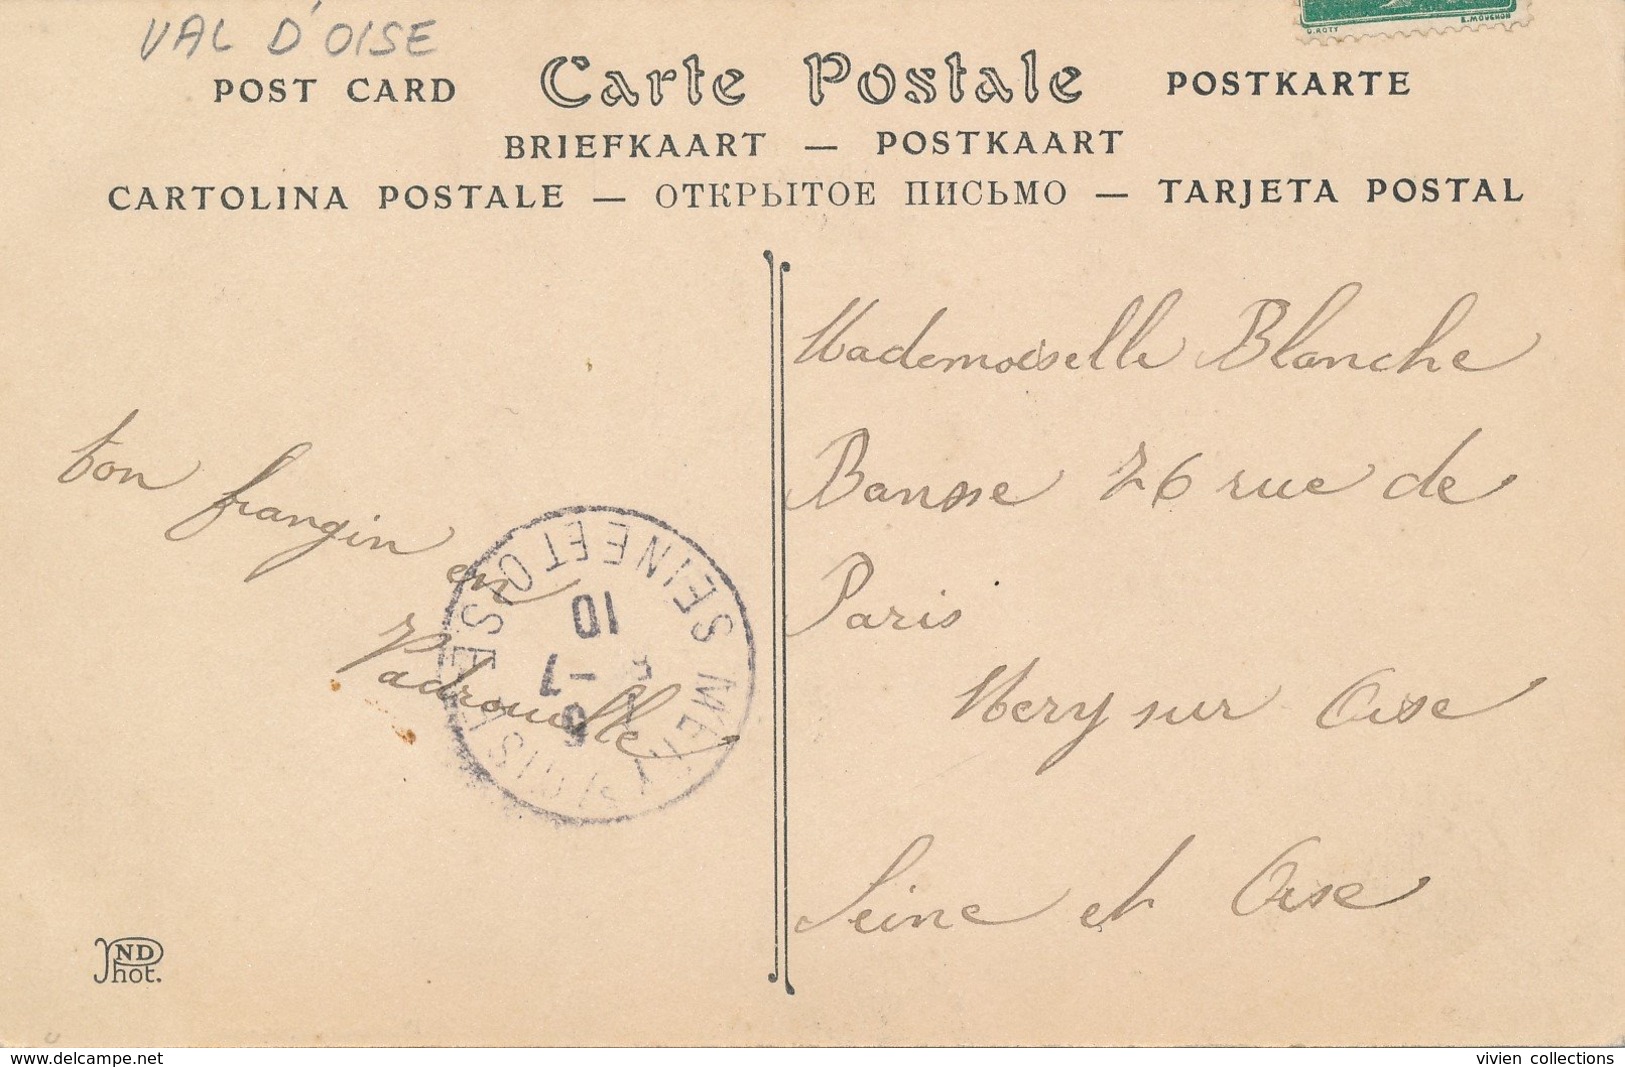 VAL D'OISE
O. ROTY E. MOUCHON
POST CARD Carte Postale POSTKARTE
BRIEFKAART — POSTKAART
CARTOLINA POSTALE — ОТКРЫТОЕ ПИСЬМО — TARJETA POSTAL
ton frangin en
Padrouille
MERY S/ OISE SEINE ET OISE
10 -7
Mademoiselle Blanche
Banse 26 rue de
Paris
Mery sur Oise
Seine et Oise
ND
Phot.
www.delcampe.net
vivien collections